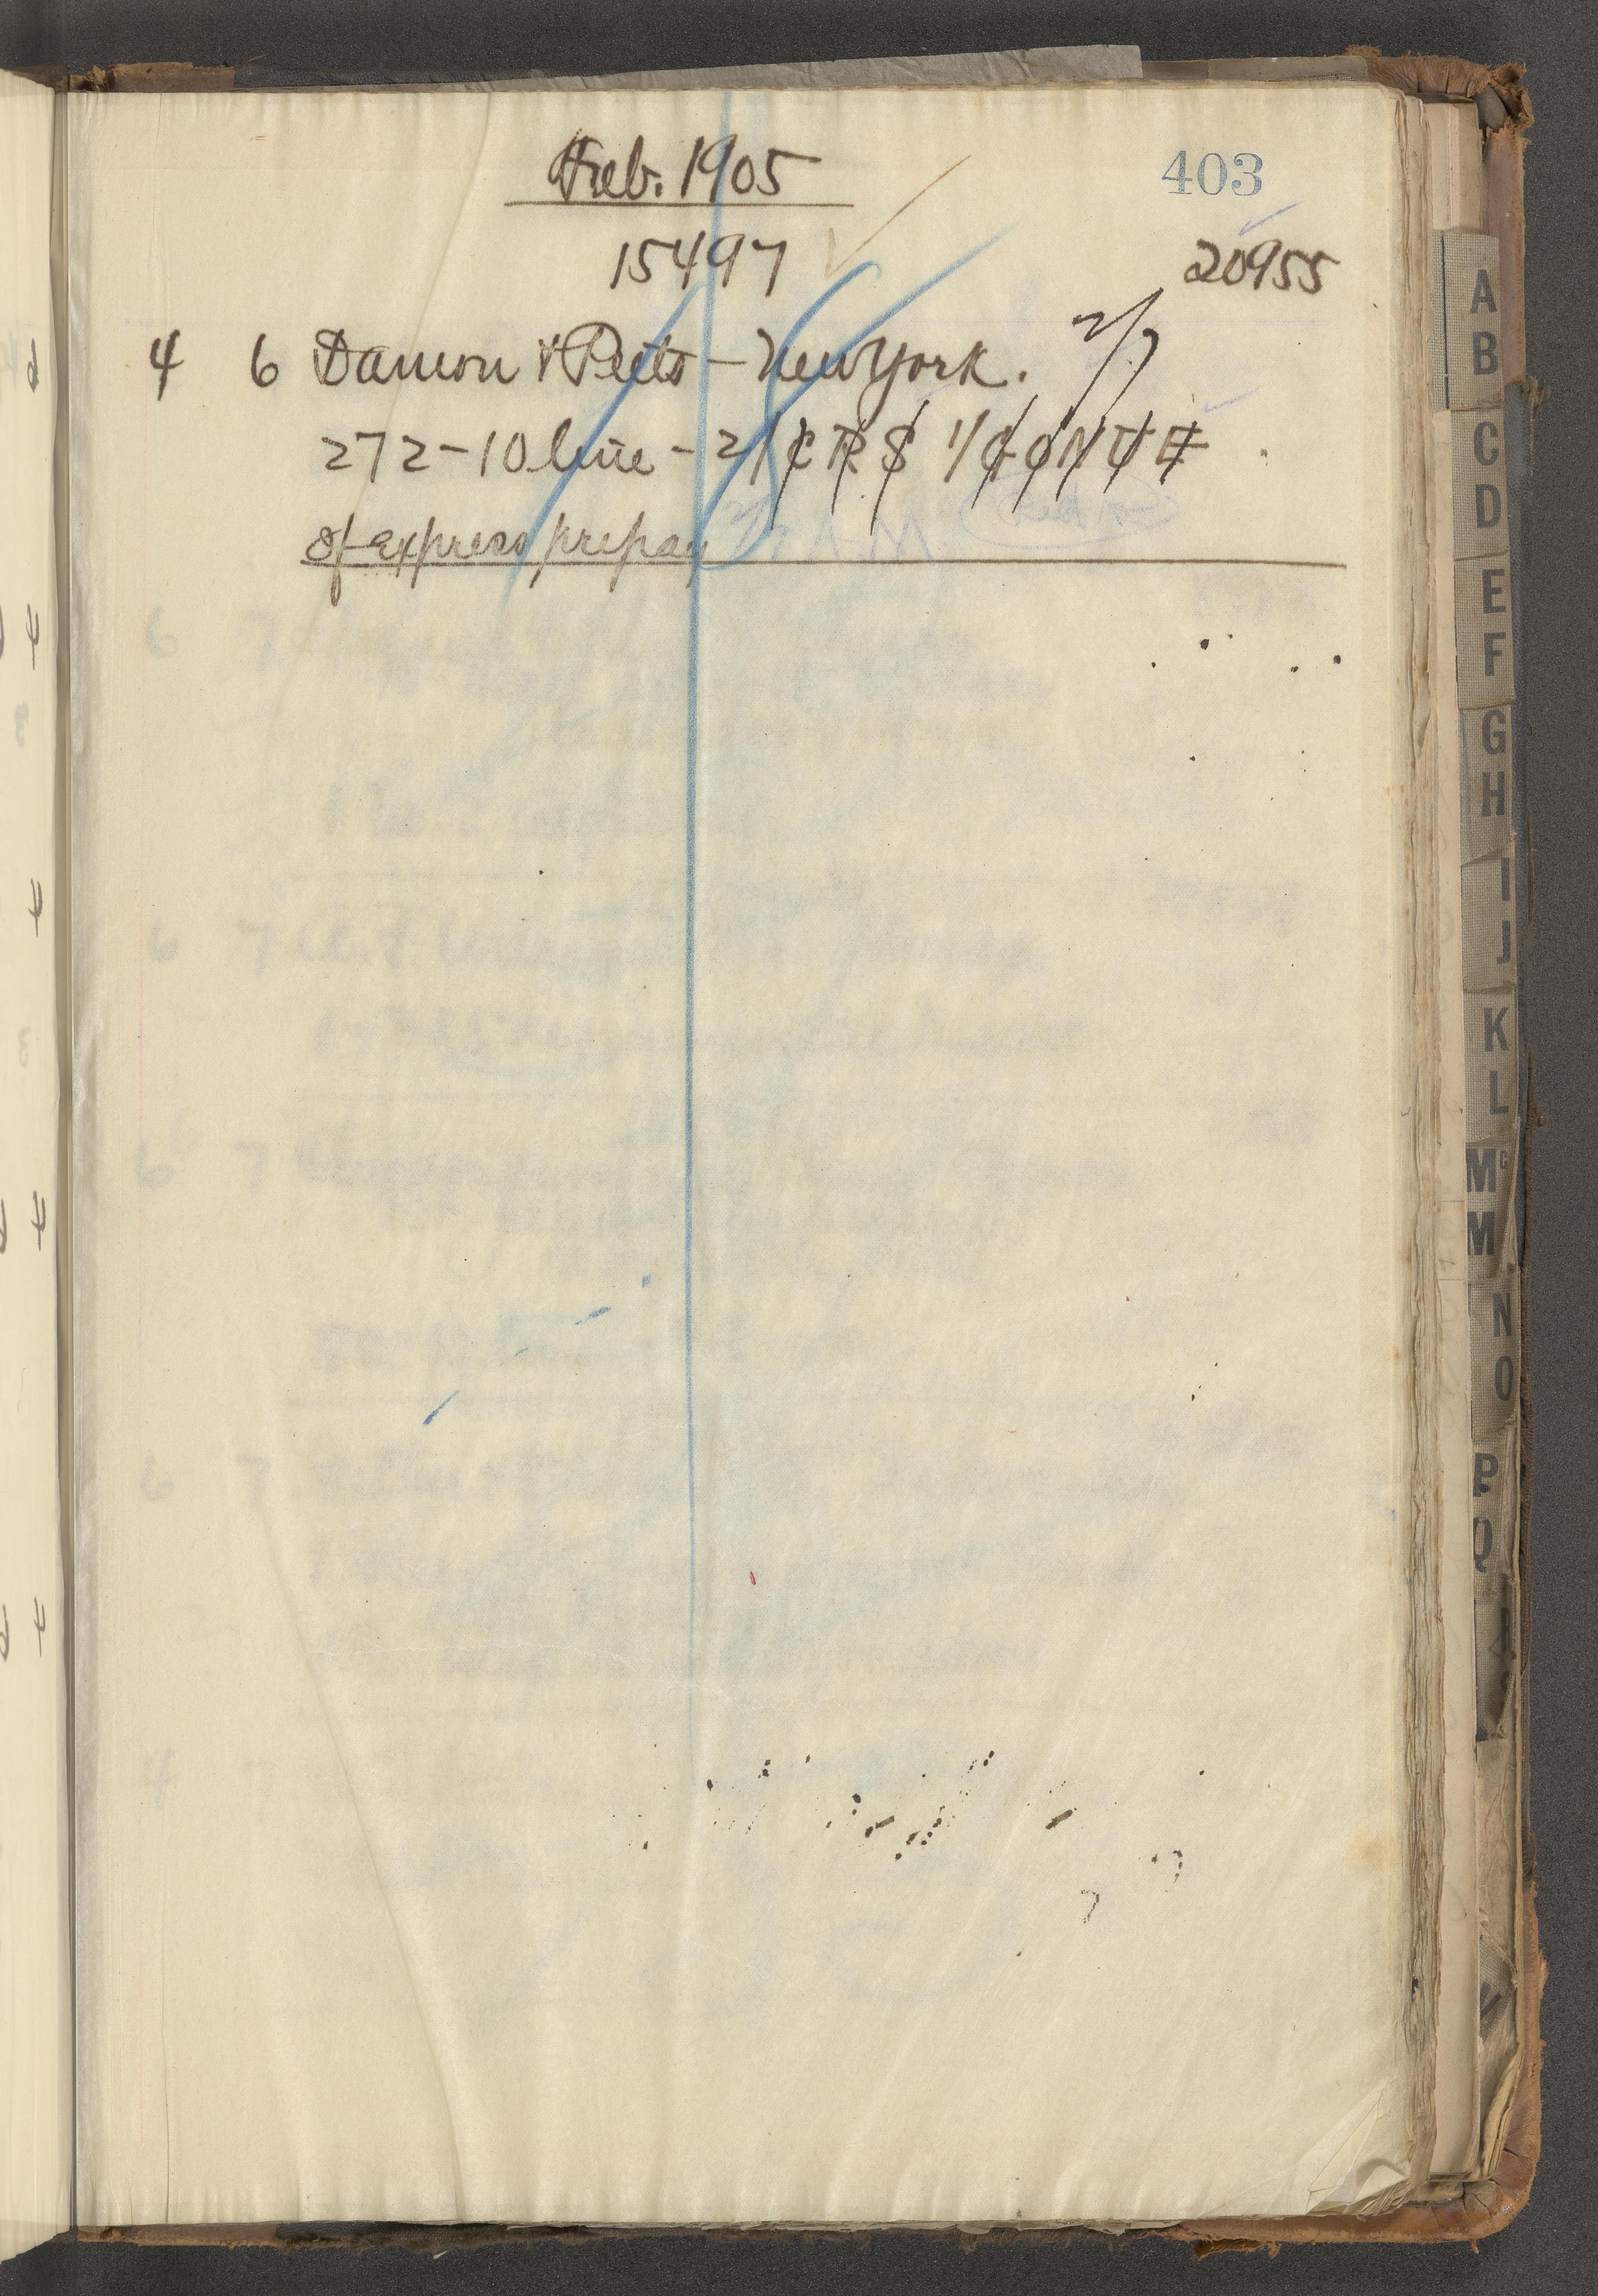 Feb. 1905
403
15497
20955
4 6 Damon & Peets - New York. 2/7
272-10 line - 2/ C R S 1/ C O N U E
of express prepay
2/7 AM
A
B
C
D
E
F
G
H
I
J
K
L
Mc
M
N
O
P
Q